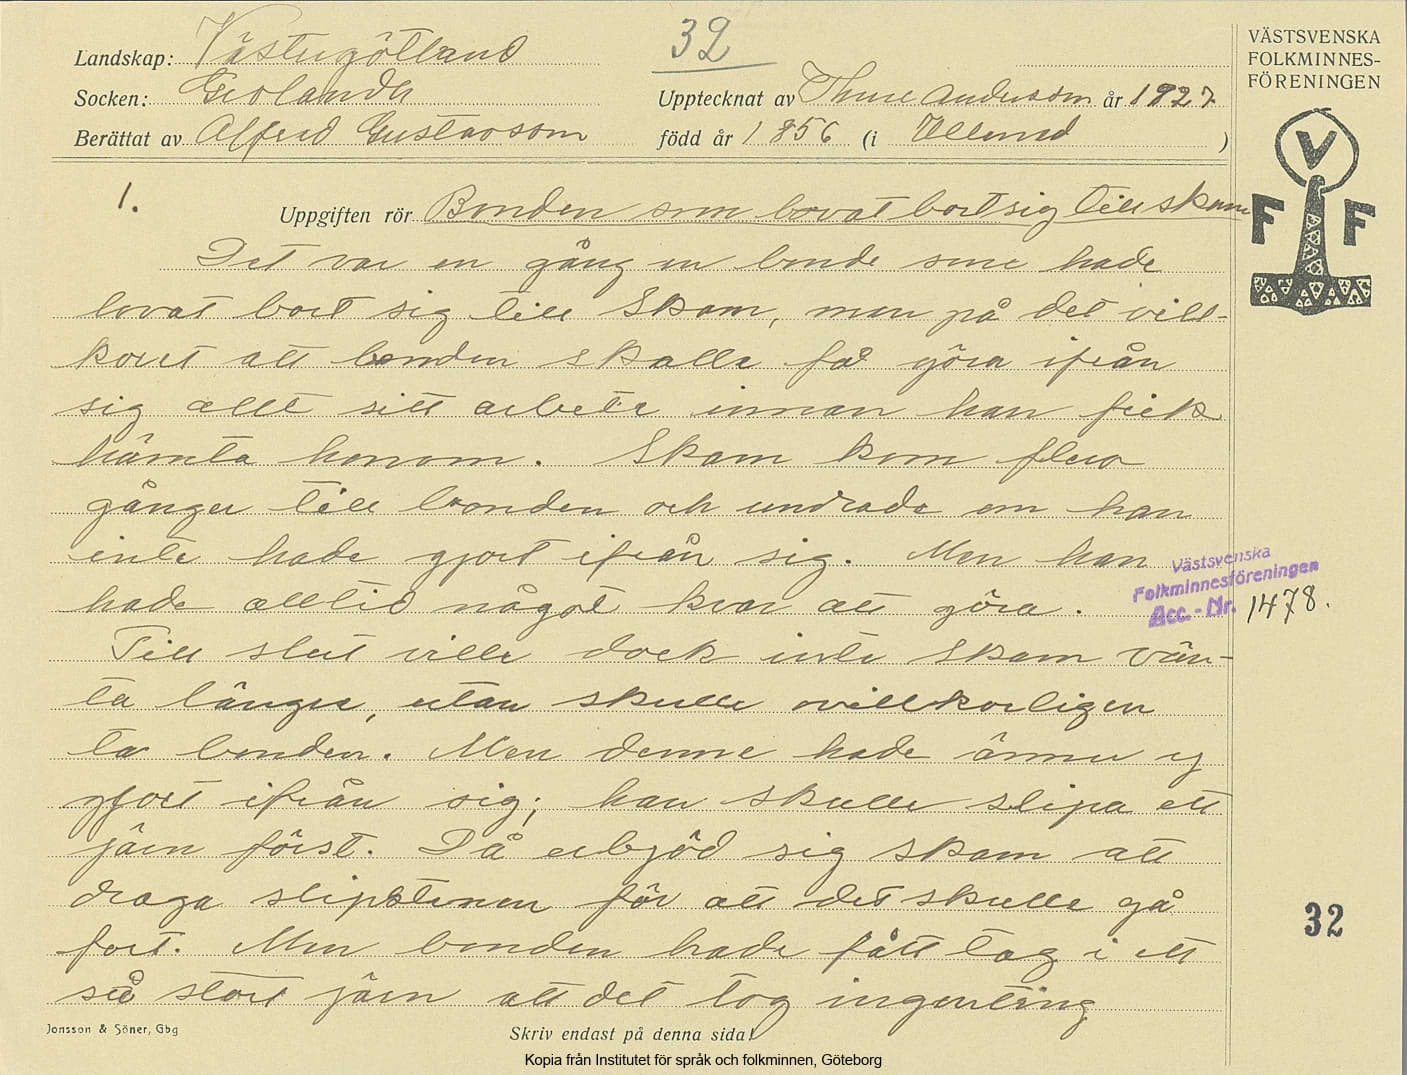 32
VÄSTSVENSKA
FOLKMINNES-
FÖRENINGEN
Landskap: Västergötland
Socken: Grolanda
Upptecknat av Thure Andersson år 1927.
Berättat av Alfred Gustavsson född år 1856 (i Ullene )
V
F F
1.
Uppgiften rör Bonden som lovat bort sig till skam
Det var en gång en bonde som hade
lovat bort sig till Skam, men på det vill-
koret att bonden skulle få göra ifrån
sig allt sitt arbete innan han fick
hämta honom. Skam kom flera
gånger till bonden och undrade om han
inte hade gjort ifrån sig. Men han
hade alltid något kvar att göra.
Till slut ville dock inte Skam vän-
ta längre, utan skulle ovillkorligen
ta bonden. Men denne hade ännu ej
gjort ifrån sig; han skulle slipa ett
järn först. Då erbjöd sig skam att
draga slipstenen för att det skulle gå
fort. Men bonden hade fått tag i ett
så stort järn att det tog ingenting
Västsvenska
Folkminnesföreningen
Acc. - Nr. 1478.
32
Jonsson & Söner, Gbg
Skriv endast på denna sida!
Kopia från Institutet för språk och folkminnen, Göteborg